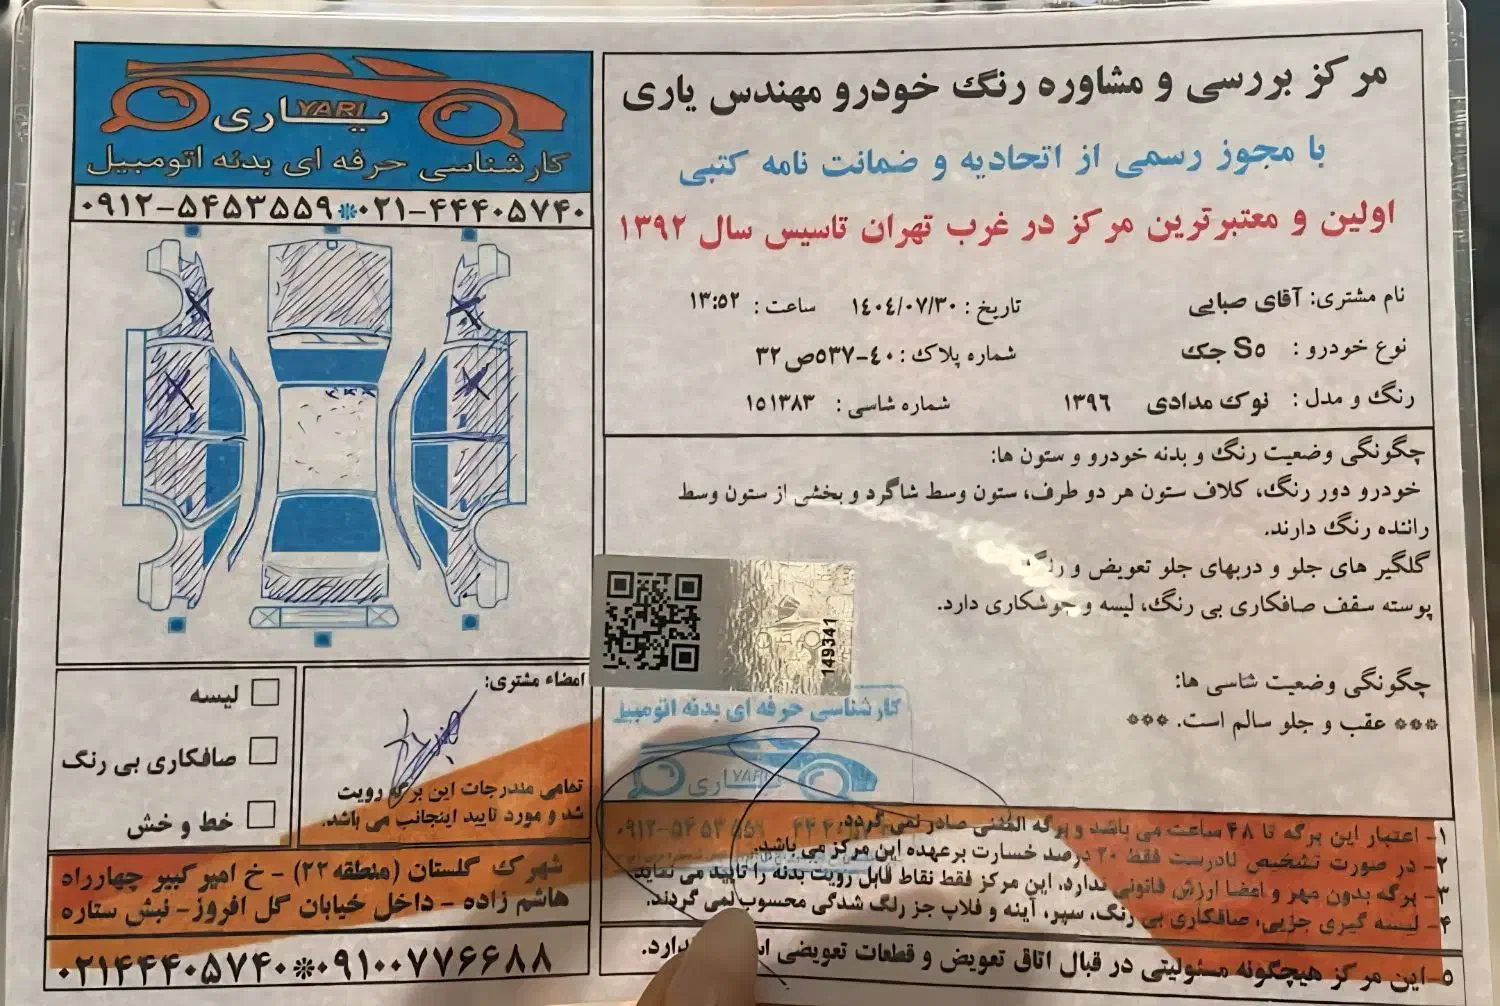 مرکز بررسی و مشاوره رنگ خودرو مهندس یاری
با مجوز رسمی از اتحادیه و ضمانت نامه کتبی
اولین و معتبرترین مرکز در غرب تهران تاسیس سال ۱۳۹۲
نام مشتری: آقای صبایی
تاریخ : ۱۴۰۴/۰۷/۳۰ ساعت : ۱۳:۵۲
نوع خودرو : S۵ جک
شماره پلاک : ۴۰-۵۳۷ص۳۲
رنگ و مدل : نوک مدادی ۱۳۹۶
شماره شاسی : ۱۵۱۳۸۳
چگونگی وضعیت رنگ و بدنه خودرو و ستون ها:
خودرو دور رنگ، کلاف ستون هر دو طرف، ستون وسط شاگرد و بخشی از ستون وسط
راننده رنگ دارند.
گلگیر های جلو و دربهای جلو تعویض و
پوسته سقف صافکاری بی رنگ، لیسه و جوشکاری دارد.
چگونگی وضعیت شاسی ها:
*** عقب و جلو سالم است. ***
149341
کارشناسی حرفه ای بدنه اتومبیل
یاری YARI
۱- اعتبار این برگه تا ۴۸ ساعت می باشد و برگه المثنی صادر نمی گردد.
۲- در صورت تشخیص نادرست فقط ۲۰ درصد خسارت برعهده این مرکز می باشد.
۳- برگه بدون مهر و امضا ارزش قانونی ندارد. این مرکز فقط نقاط قابل رویت بدنه را تایید می نماید
۴- لیسه گیری جزیی، صافکاری بی رنگ، سپر، آینه و قلاب جز رنگ شدگی محسوب نمی گردند.
۵-این مرکز هیچگونه مسئولیتی در قبال اتاق تعویض و قطعات تعویضی
یاری YARI
کارشناسی حرفه ای بدنه اتومبیل
۰۹۱۲-۵۴۵۳۵۵۹*۰۲۱-۴۴۴۰۵۷۴۰
لیسه
صافکاری بی رنگ
خط و خش
امضاء مشتری:
تمامی مندرجات این برگه رویت
شد و مورد تایید اینجانب می باشد.
شهرک گلستان (منطقه ۲۲) - خ امیر کبیر چهارراه
هاشم زاده - داخل خیابان گل افروز- نبش ستاره
۰۲۱۴۴۴۰۵۷۴۰*۰۹۱۰۰۷۷۶۶۸۸